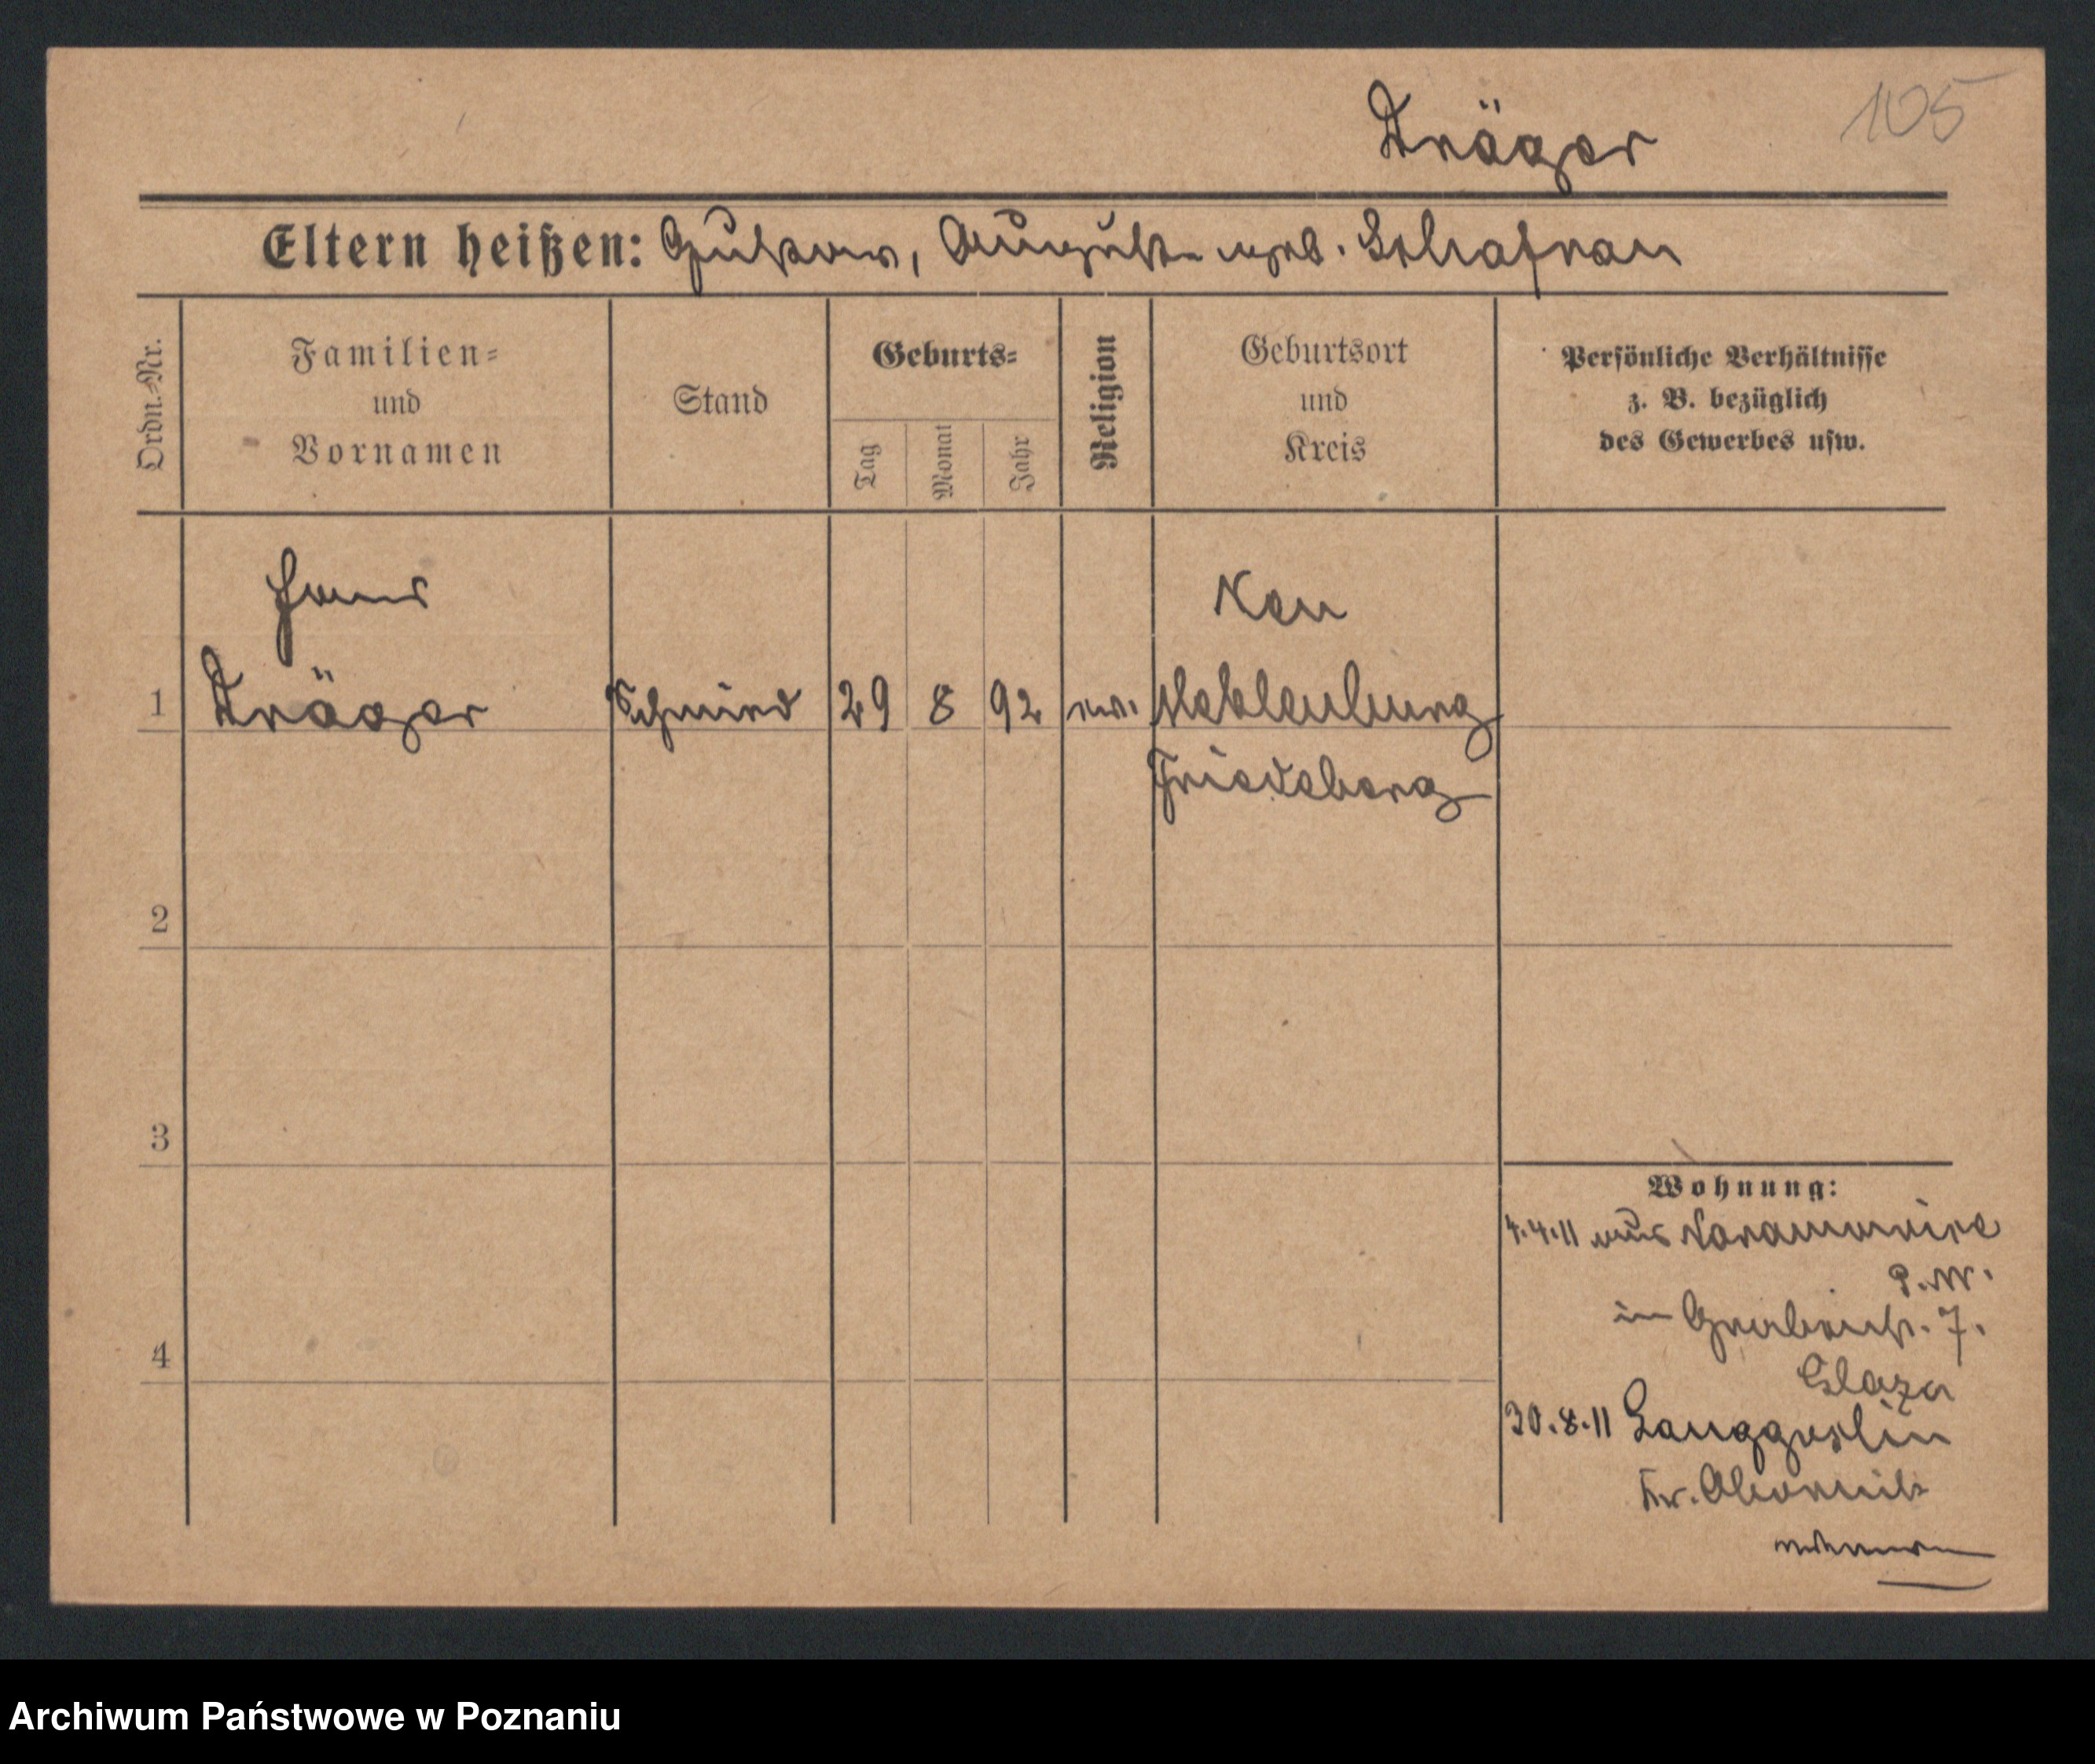 105
Dräger
Eltern heißen: Gustav, Auguste geb. Schafran
Ordn.-Nr.
Familien-
und
Vornamen
Stand
Geburts-
Tag
Monat
Jahr
Religion
Geburtsort
und
Kreis
Persönliche Verhältnisse
z. B. bezüglich
des Gewerbes usw.
Hans
Neu
1 Dräger Schmied 29 8 92 ev. Meklenburg
Friedeberg
2
3
4
Wohnung:
4.4.11 aus
in Grabenstr. 7.
30.8.11 Langgoslin
Kr. Obornik
Archiwum Państwowe w Poznaniu